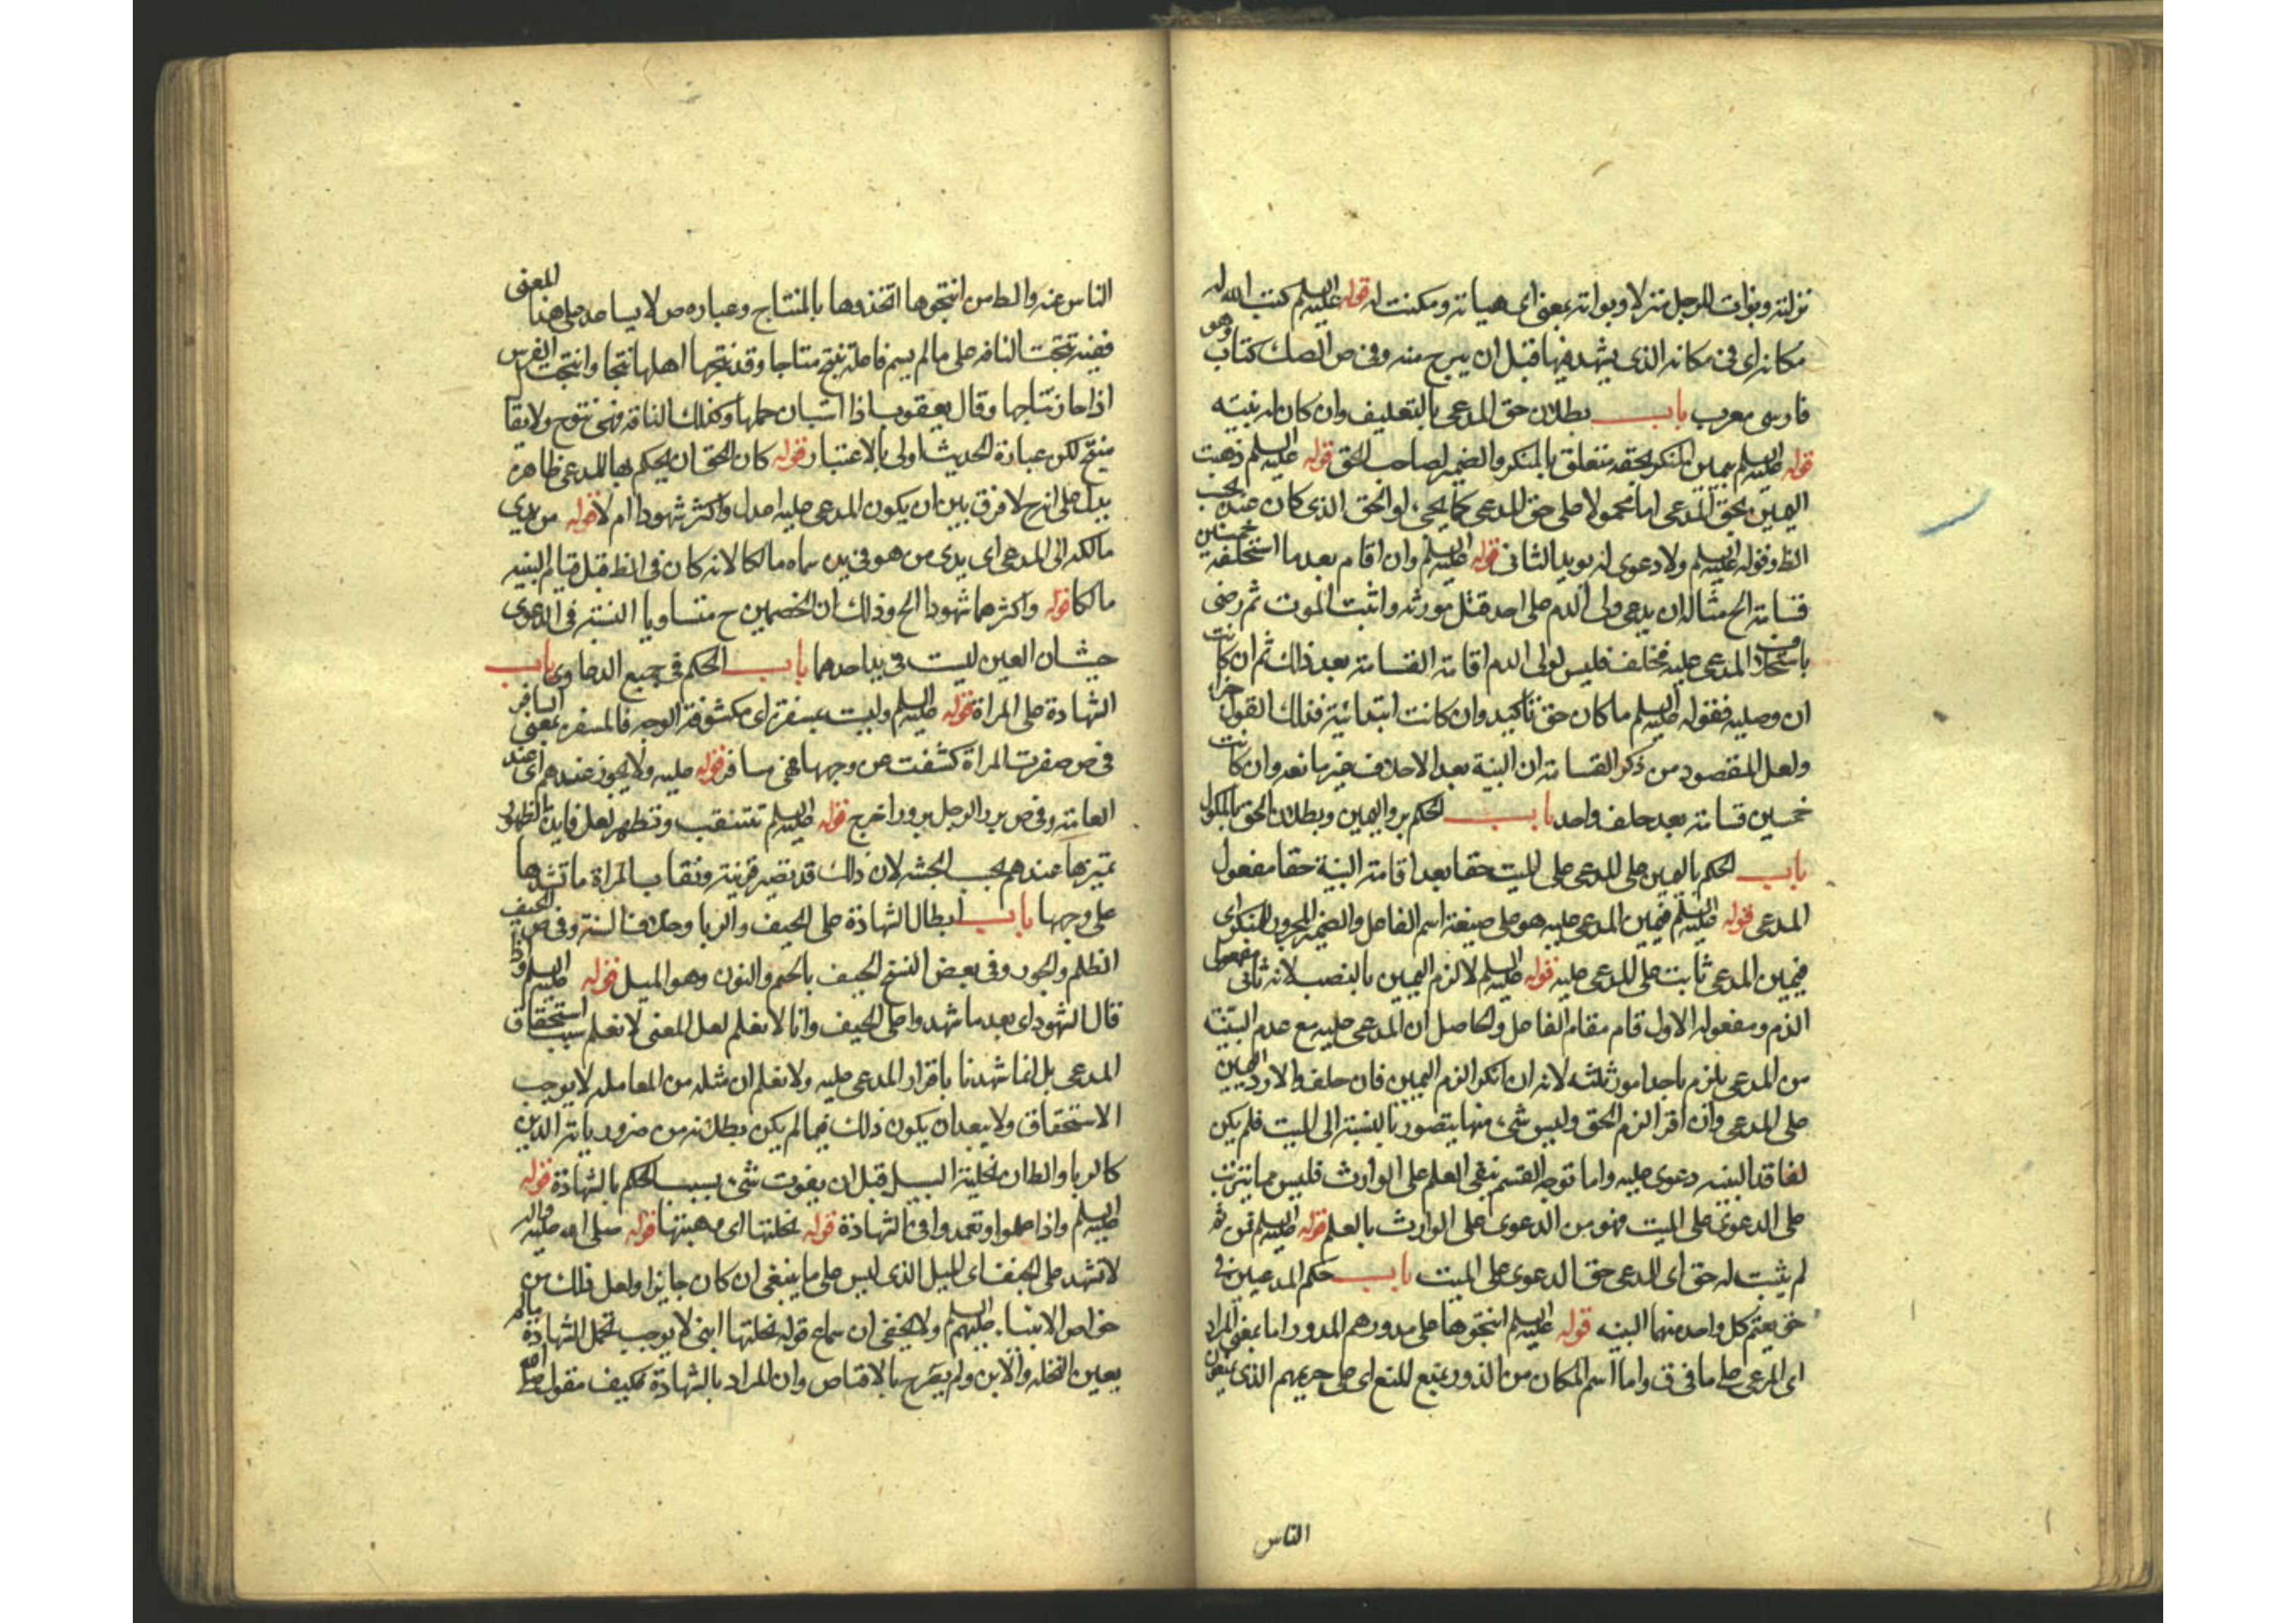 نزلته وبوات للرجل منزلا وبواته بمعنى اى هيأته ومكنت له قوله عليه السلم كتب الله له
مكانه اى فى مكانه الذى يشهد فيها قبل ان يبرح منه وفى ص الصك كتاب وهو
فارسى معرب باب بطلان حق المدعى بالتحليف وان كان له بينه
قوله عليه السلم بيمين المنكر بحقه متعلق بالمنكر والضمير لصاحب الحق قوله عليه السلم ذهبت
اليمين بحق المدعى اما محمولا على حق للمدعى كما يجىء او الحق الذى كان عنده بحسب
الظ وقوله عليه السلم ولا دعوى له يويد الثانى قوله عليه السلم وان اقام بعد ما استحلفه خمسين
قسامة الخ مثاله ان يدعى ولى الدم على احد قتل مورثه واثبت الموت ثم رضى
المدعى عليه فحلف فليس لولى الدم اقامة القسامة بعد ذلك ثم ان كانت
ان وصليه فقوله عليه السلم ما كان حق تأكيد وان كانت ابتدائية فذلك القول
ولعل المقصود من ذكر القسامه ان البينة بعد الاحلاف غير مانعه وان كانت
خمسين قسامة بعد حلف واحد باب الحكم برد اليمين وبطلان الحق بالنكول
باب الحكم باليمين على المدعى على الميت حقا بعد اقامة البينة حقا مفعول
المدعى قوله عليه السلم فيمين المدعى عليه هو على صيغة اسم الفاعل والضمير المجرور للمنكر اى
فيمين المدعى ثابت على المدعى عليه قوله عليه السلم لالزم اليمين بالنصب لانه ثانى مفعول
الزم ومفعوله الاول قام مقام الفاعل والحاصل ان المدعى عليه مع عدم البينة
من المدعى يلزم باحد امور ثلثه لانه ان انكر الزم اليمين فان حلف والا رد اليمين
على المدعى وان اقر الزم الحق وليس شىء منها يتصور بالنسبة الى الميت فلم يكن
لفاقد البينه دعوى عليه واما توجه القسم بنفى العلم على الوارث فليس مما يترتب
على الدعوى على الميت فهو من الدعوى على الوارث بالعلم قوله عليه السلم فمن ثم
لم يثبت له حق اى للمدعى حق الدعوى على الميت باب حكم المدعيين فى
حق يقيم كل واحد منهما البينه قوله عليه السلم انتجوها على مدورهم المدور اما بمعنى المراد
اى المرعى على ما فى ق واما اسم المكان من الذود بمنع للمنع اى على حريمهم الذى يمنعون
الناس
الناس عنه والط من انتجوها اتخذوها بالمنتاج وعباره ص لا يساعد على هذا المعنى
ففيه نتجت الناقه على ما لم يسم فاعله تنتج نتاجا وقد نتجها اهلها نتجا وانتجت الفرس
اذا حان نتاجها وقال يعقوب اذا استبان حملها وكذلك الناقه فهى نتوج ولا يقال
منتج لكن عبارة الحديث اولى بالاعتبار قوله كان الحق ان يحكم بها للمدعى ظاهره
يدل على انه لا فرق بين ان يكون المدعى عليه اعدل واكثر شهودا ام لا قوله من يدى
مالكه الى المدعى اى يدى من هو فى يده سماه مالكا لانه كان فى الظ قبل قيام البينه
مالكا قوله واكثرهما شهودا الخ وذلك ان الخصمين ح متساويا النسبة فى الدعوى
حيث ان العين ليست فى يد احدهما باب الحكم فى جميع الدعاوى باب
الشهادة على المراة قوله عليه السلم وليست بمسفرة اى مكشوفة الوجه فالمسفر بمعنى السافر
فى ص سفرت المراة كشفت عن وجهها فهى سافر قوله عليه ولا يجوز عندهم اى عند
العامة وفى ص برز الرجل بروزا خرج قوله عليه السلم تتنقب وتظهر لعل فايدة الظهور
تميزها عندهم بحسب الجثه لان ذلك قد تصير قرينة ونقاب المراة ما تشدها
على وجهها باب ابطال الشهادة على الحيف والربا وخلاف السنة وفى ص الحيف
الظلم والجور وفى بعض النسخ الجيف بالجيم والنون وهو الميل قوله عليه السلم واذا
قال الشهود اى بعد ما شهدوا على الحيف وانا لا نعلم لعل المعنى لا نعلم سبب استحقاق
المدعى بل انما شهدنا باقرار المدعى عليه ولا نعلم ان مثله من المعامله لا يوجب
الاستحقاق ولا يبعد ان يكون ذلك فيما لم يكن بطلانه من ضروريات الدين
كالربا والظان تخلية السبيل قبل ان يفوت شىء بسبب الحكم بالشهادة قوله
عليه السلم واذا علموا وتعمدوا فى الشهادة قوله نحلتها اى وهبتها قوله صلى الله عليه واله
لا تشهد على الجنف اى الميل الذى ليس على ما ينبغى ان كان جائزا ولعل ذلك من
خواص الانبياء عليهم السلم ولا يخفى ان سماع قوله نحلتها ابنى لا يوجب تحمل الشهادة
بعين النحله والابن ولم يصرح بالاقباض وان المراد بالشهادة فكيف مقول